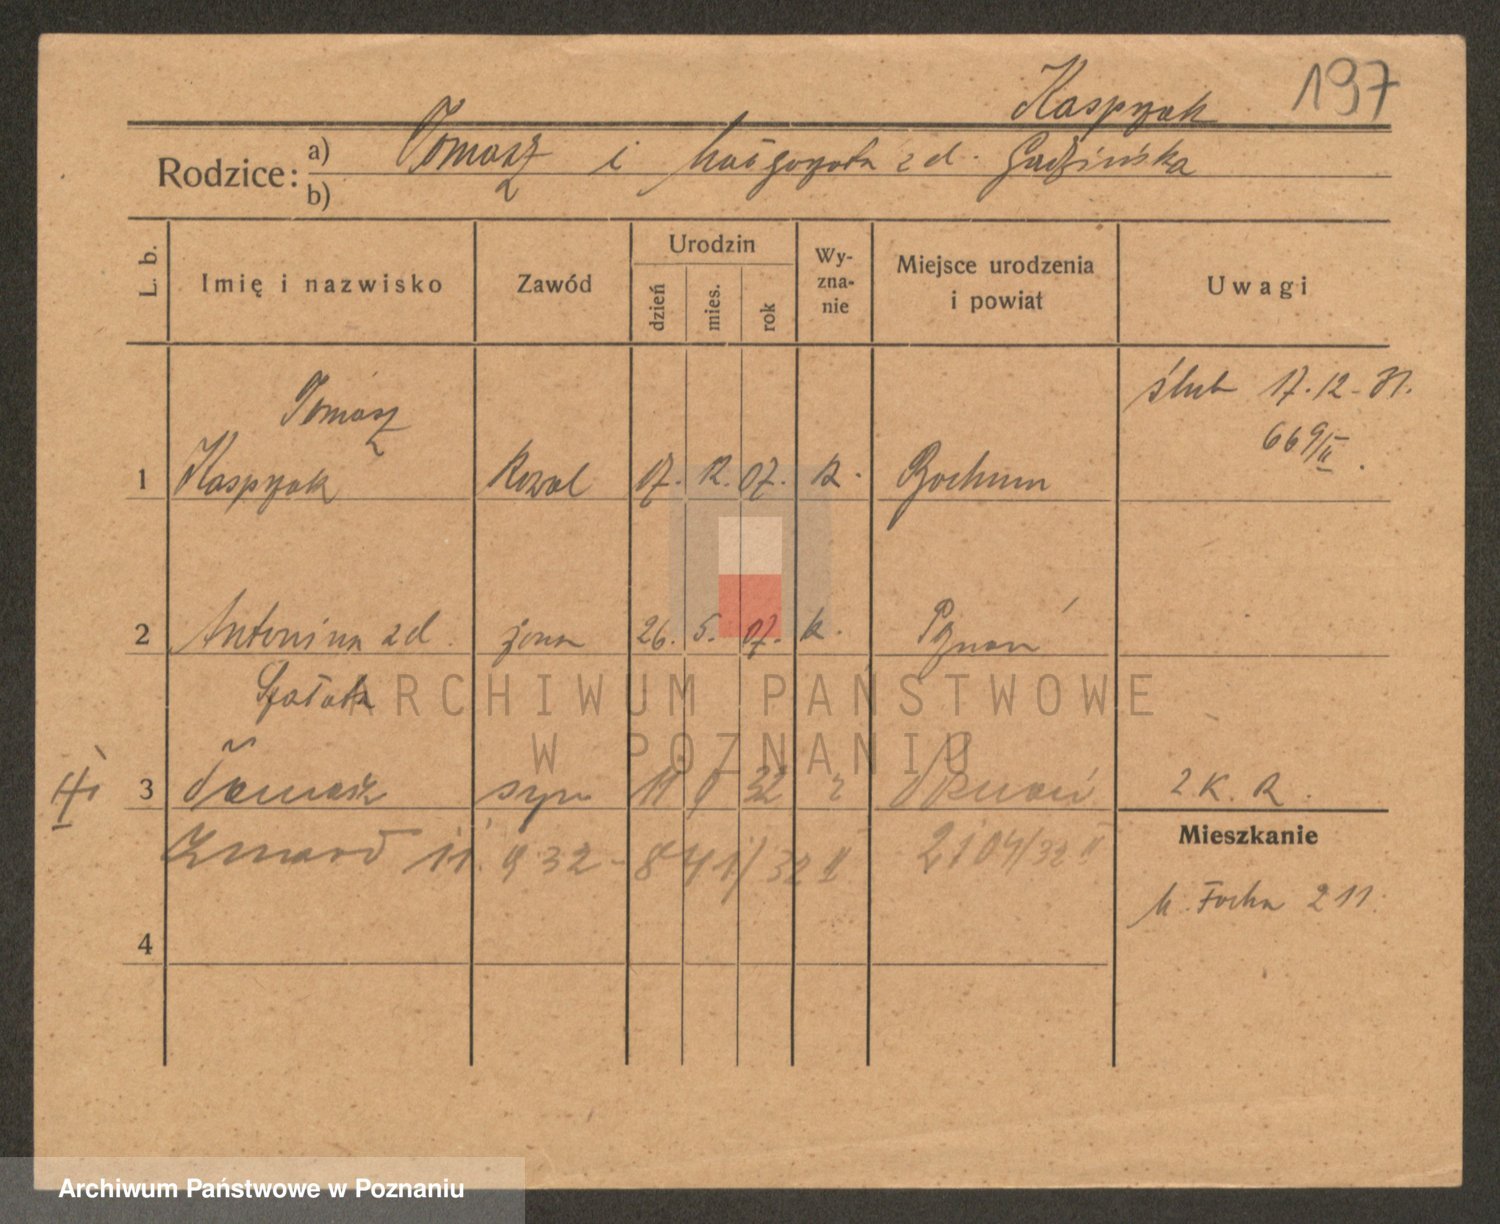 Kaspyak 197
Rodzice: a) Tomasz i Małgorzata z d.
b)
L. b. Imię i nazwisko Zawód Urodzin Wyznanie Miejsce urodzenia i powiat Uwagi
dzień mies. rok
Tomasz ślub 17.12-31.
669/II.
1 Kaspyak kowal 07. Bochum
2 Antonina zd. żona 26. 5. 07. k. Poznań
ARCHIWUM PAŃSTWOWE
W POZNANIU
3 Tomasz syn 11 9 32 r Poznań 2 K. R.
Mieszkanie
Zmarł 11 9 32 - 841/32 II 2104/32 II
M. Focha 211.
4
Archiwum Państwowe w Poznaniu